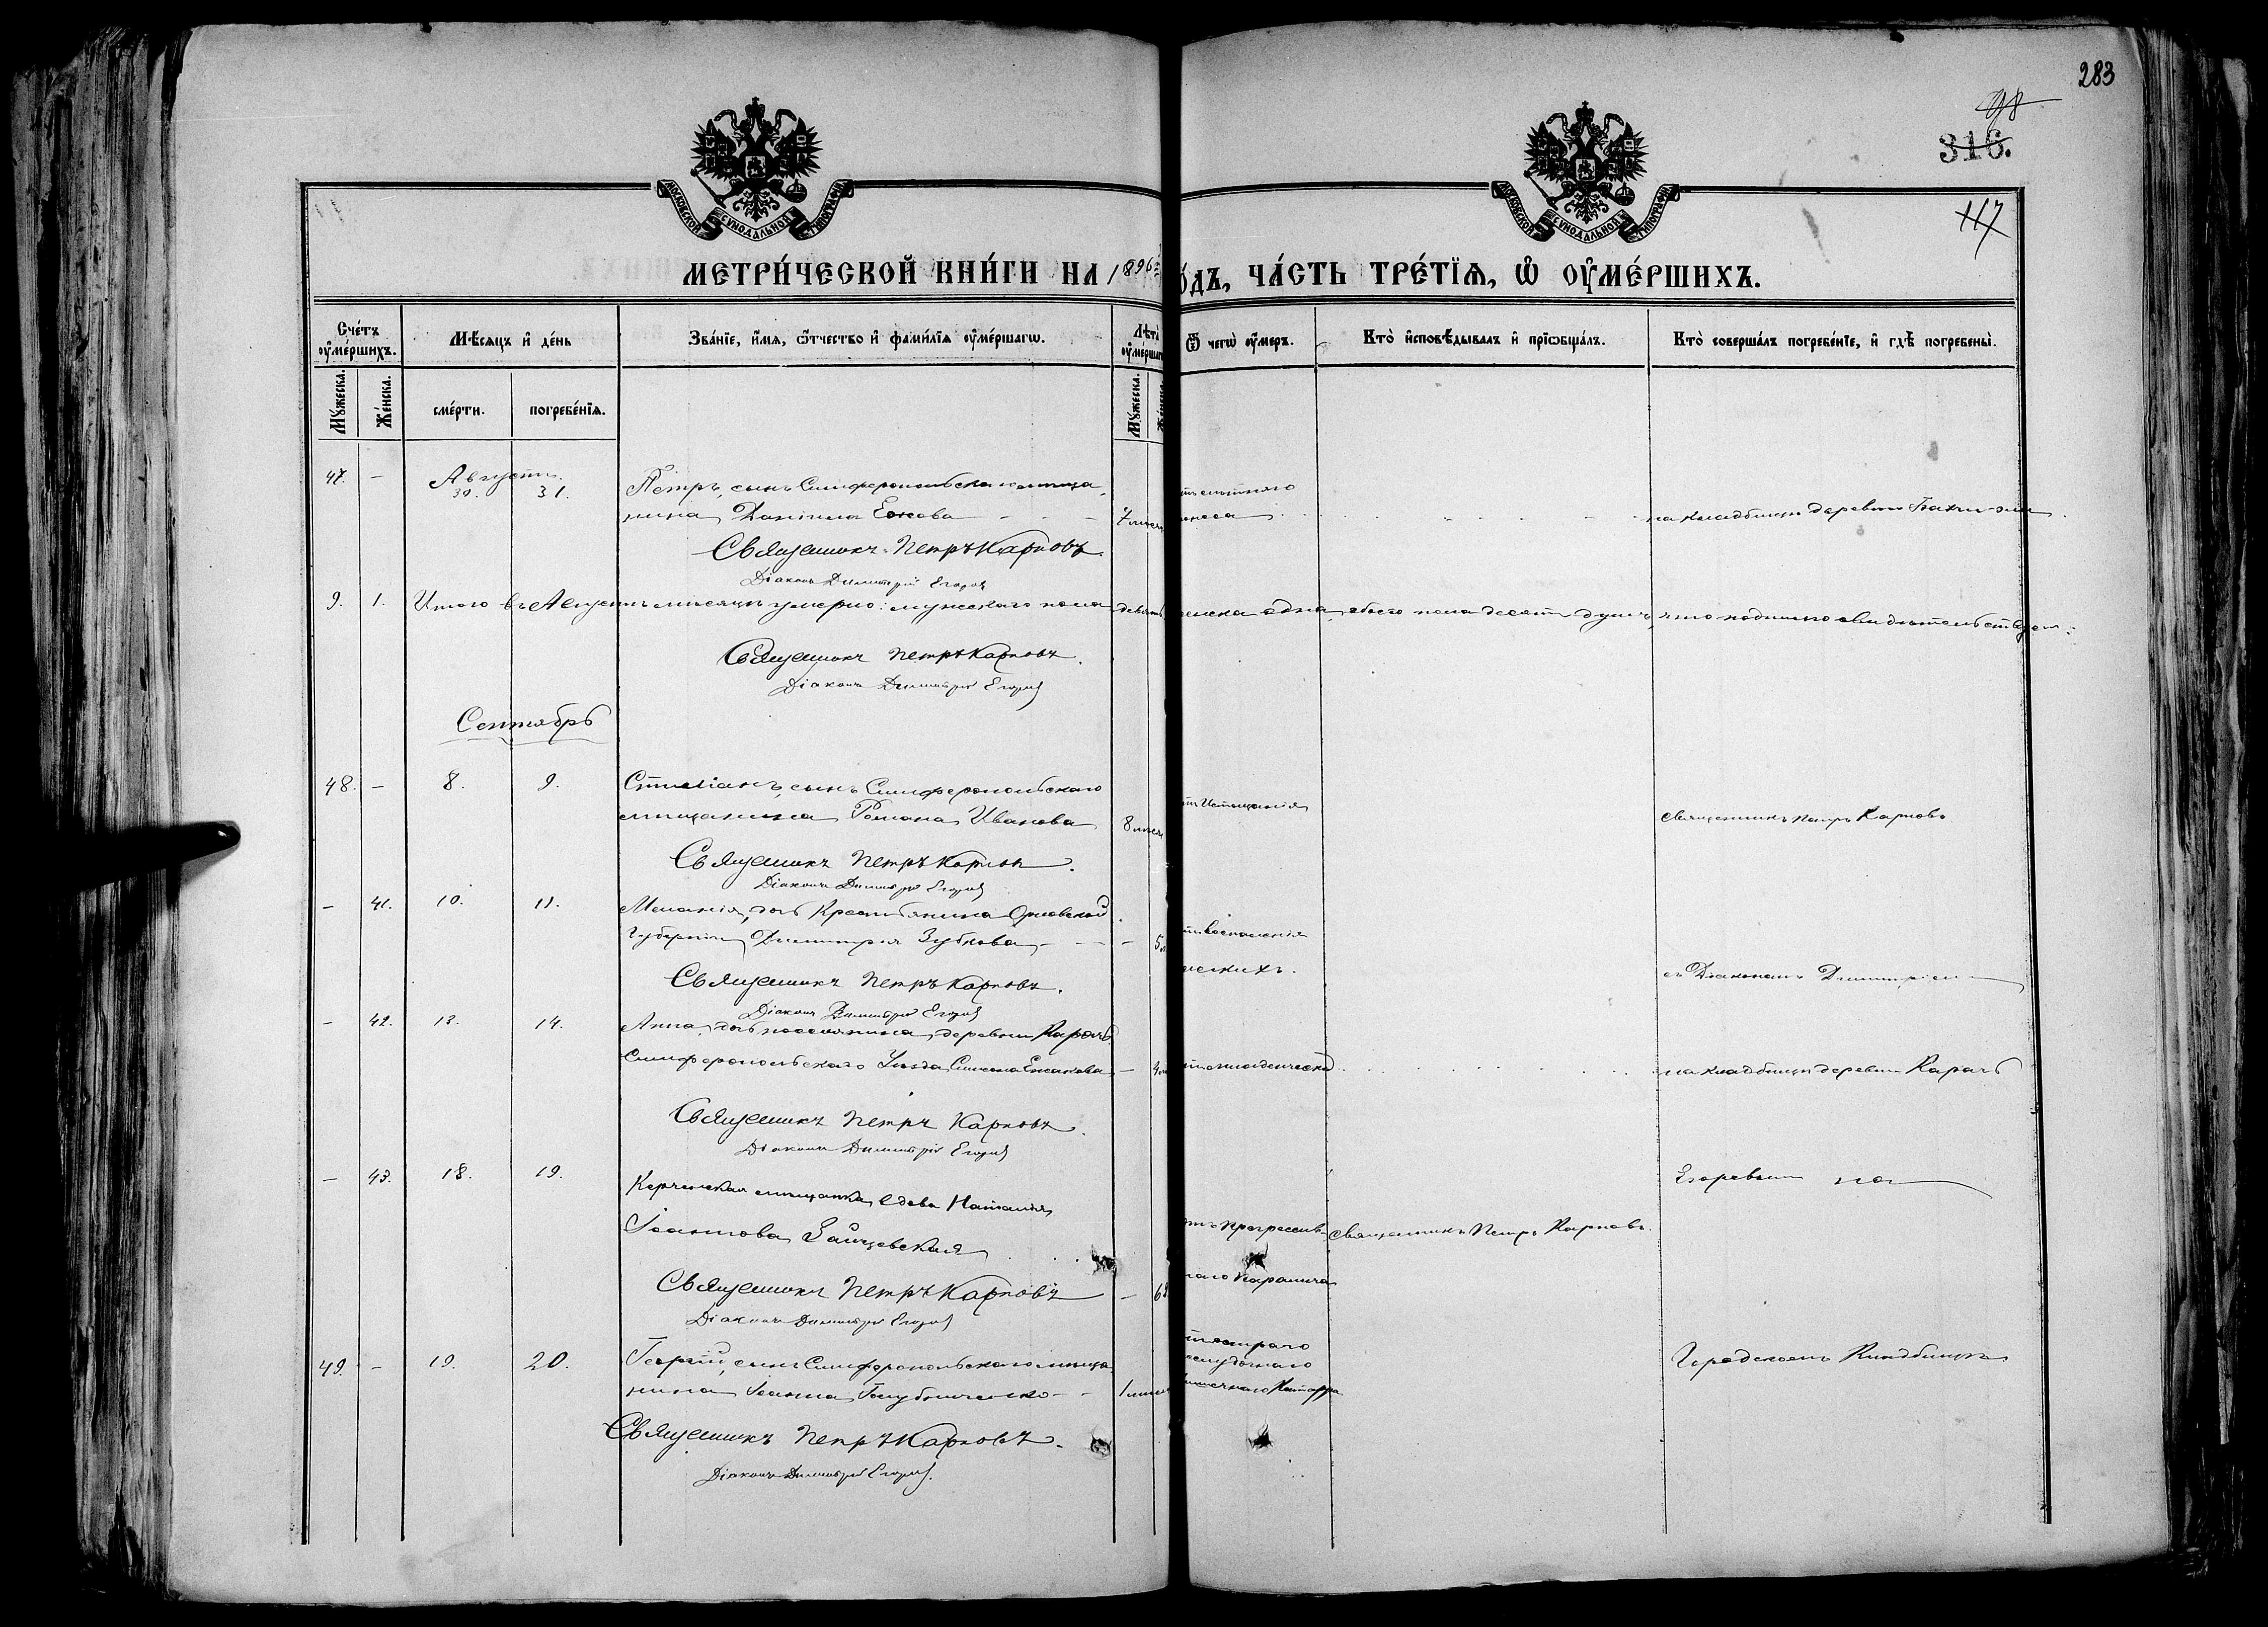 283
98
316.
117
МОСКОВСКОЙ СѴНОДАЛЬНОЙ ТИПОГРАФІИ
МОСКОВСКОЙ СѴНОДАЛЬНОЙ ТИПОГРАФІИ
МЕТРИ́ЧЕСКОЙ КНИ́ГИ НА 1896 го́дъ, ЧА́СТЬ ТРЕ́ТЇѦ, Ѡ҆ ОУ҆МЕ́РШИХЪ.
Сче́тъ оу҆ме́ршихъ.
Мѣ́сяцъ и҆ де́нь
Зва́нїе, и҆́мя, ѻ҆́тчество и҆ фами́лїя оу҆ме́ршагѡ.
Лѣ́та оу҆ме́ршаг
Ѿ чегѡ̀ оу҆́меръ.
Кто̀ и҆сповѣ́дывалъ и҆ прїѡбща́лъ.
Кто̀ соверша́лъ погребе́нїе, и҆ гдѣ̀ погребены̀.
Мꙋ́жеска.
Же́нска.
сме́рти.
погребе́нїя.
Мꙋ́жеска.
47. - Августъ.
30. 31.
Петръ, сынъ Симферопольскаго мѣща-
нина Даніила Ежова - - - 7 мѣся
на кладбищѣ деревни Бахчи-эли
Священникъ Петръ Карповъ
Діаконъ Димитрій Егоровъ
9. 1. Итого въ Августѣ мѣсяцѣ умерло: мужескаго пола девять женска одна, обоего пола десять душъ, что подписью свидѣтельствуемъ:
Священникъ Петръ Карповъ.
Діаконъ Димитрій Егоровъ
Сентябрь
48. - 8. 9. Стиліанъ, сынъ Симферопольскаго
мѣщанина Романа Иванова 8 мѣся
отъ Истощенія
Священникъ Петръ Карповъ
Священникъ Петръ Карповъ.
Діаконъ Димитрій Егоровъ
- 41. 10. 11. Меланія, дочь Крестьянина Орловской
Губерніи Димитрія Зубкова - - - 5 м
отъ воспаленія
легкихъ.
съ Діакономъ Димитріемъ
Священникъ Петръ Карповъ.
Діаконъ Димитрій Егоровъ
- 42. 13. 14. Анна, дочь поселянина деревни Карачь
Симферопольскаго Уѣзда Симеона Ежакова -
на кладбищѣ деревни Карачь
Священникъ Петръ Карповъ.
Діаконъ Димитрій Егоровъ
- 43. 18. 19. Керченская мѣщанка, вдова Наталія
Іоаннова Зайцевская
отъ прогрессив-
наго паралича
Священникъ Петръ Карповъ.
Егоревымъ на
Священникъ Петръ Карповъ
Діаконъ Димитрій Егоровъ
49. - 19. 20. Георгій, сынъ Симферопольскаго мѣща-
нина Іоанна Голубниченко - - 1 мѣся
отъ остраго
желудочнаго
кишечнаго Катарра
Городскомъ Кладбищѣ
Священникъ Петръ Карповъ.
Діаконъ Димитрій Егоровъ.